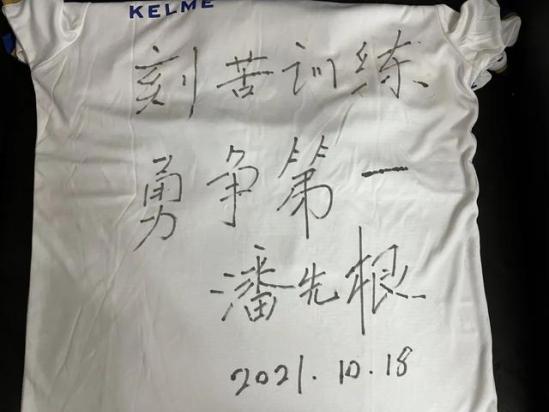 KELME
刻苦训练
勇争第一
潘先根
2021.10.18